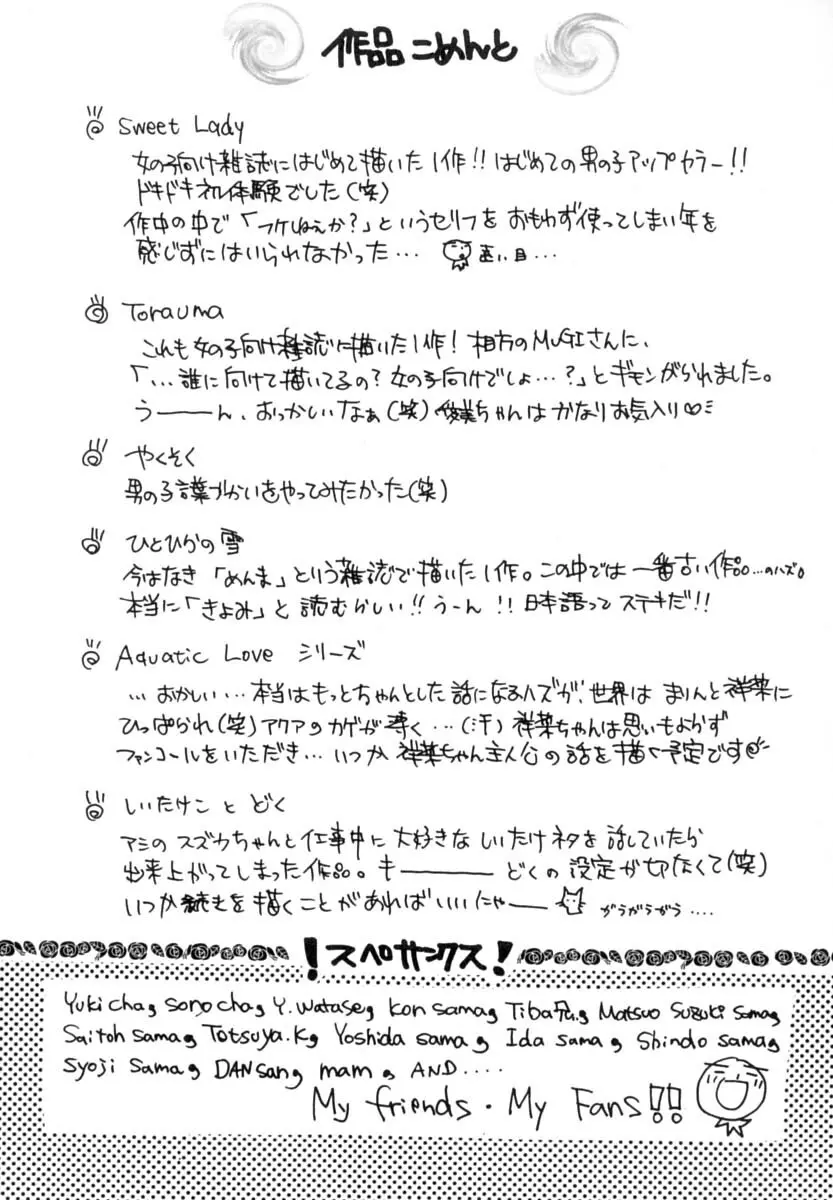 作品こめんと
Sweet Lady
女の子向け雑誌にはじめて描いた1作!! はじめての男の子アップカラー!!
ドキドキネル体験でした(笑)
作中の中で「フケねぇか?」というセリフを おもわず使ってしまい年を
感じずにはいられなかった… 遠い目…
Torauma
これも女の子向け雑誌に描いた1作! 相方のMUGIさんに、
「…誰に向けて描いてるの? 女の子向けでしょ…?」とギモンがられました。
う——ん、おっかしいなぁ(笑) ちゃんはかなりお気入り♡
やくそく
男の子言葉づかいをやってみたかった(笑)
ひとひらの雪
今はなき「めんま」という雑誌で描いた1作。この中では一番古い作品…のハズ。
本当に「きよみ」と読むらしい!! うーん!! 日本語ってステキだ!!
Aquatic Love シリーズ
…おかしい…本当はもっとちゃんとした話になるハズが、世界は まりんと祥菜に
ひっぱられ(笑) アクアのカゲが薄く…(汗) 祥菜ちゃんは思いもよらず
ファンコールをいただき… いつか 祥菜ちゃん主人公の話を描く予定です
しいたけこ と どく
アシの スズカちゃんと仕事中に 大好きな しいたけネタを 話していたら
出来上がってしまった作品。キ——— どくの設定が切なくて(笑)
いつか続きを描くことがあればいいにゃー がうがうがう….
!スペサンクス!
Yukicha, sonocha, Y.watase, kon sama, Tiba兄, Matsuo Suzuki sama,
Saitoh sama, Totsuya.K, Yoshida sama, Ida sama, Shindo sama,
Syoji sama, DAN san, mam, AND....
My friends・My Fans!!